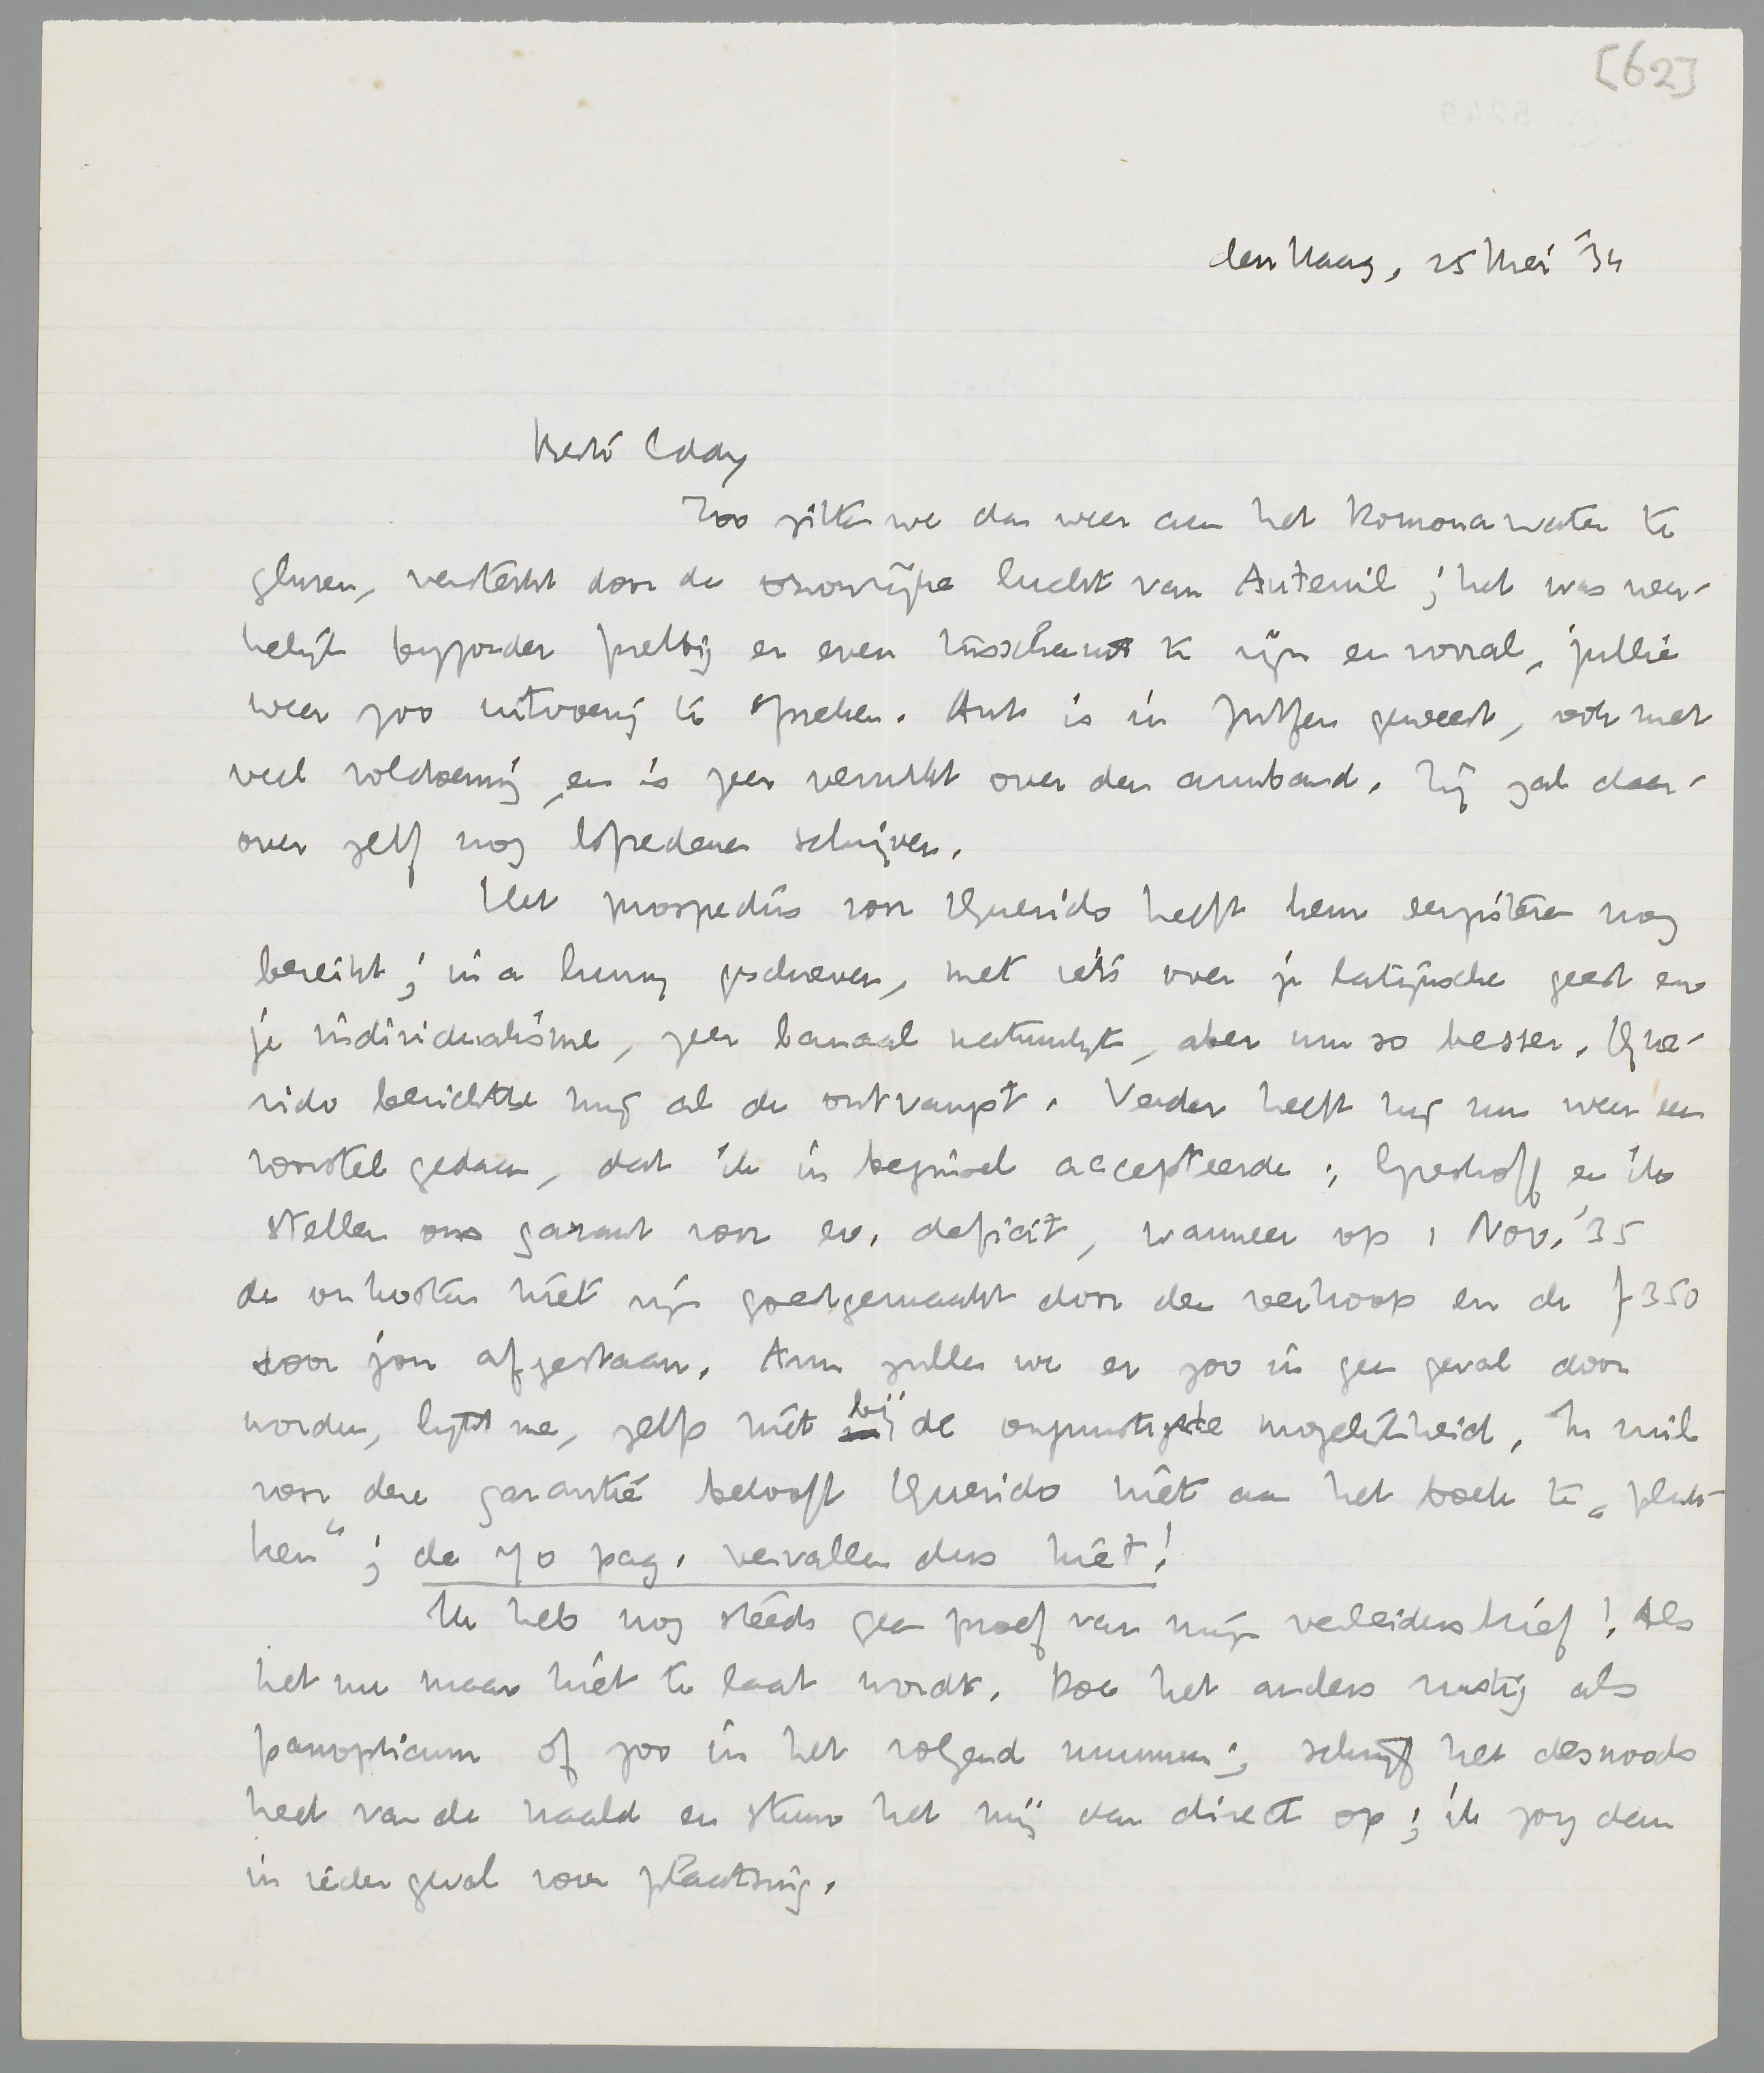 [62]
den Haag, 25 Mei '34
Beste Eddy
Zoo zitten we dan weer aan het Pomonawater te
gluren, versterkt door de ozonrijke lucht van Auteuil; het was wer-
kelijk byzonder prettig er even tusschenuit te zijn en vooral, jullie
weer zoo uitvoerig te spreken. Ant is in Zutfen geweest, ook met
veel voldoening, en is zeer verrukt over den armband. Zij zal daar-
over zelf nog loopedenen schrijven.
Het prospectus voor Querido heeft hem eergisteren nog
bereikt; in a hurry geschreven, met iets over je latijnsche geest en
je individualisme, zeer banaal natuurlyk, aber um so besser. Que-
rido berichtte mij al de ontvangst. Verder heeft hij nu weer een
voorstel gedaan, dat ik in beginsel accepteerde; Greshoff en ik
stellen ons garant voor ev. deficit, wanneer op 1 Nov. '35
de onkosten niet zijn goedgemaakt door den verkoop en de f 350
door jou afgestaan. Arm zullen we er zoo in geen geval door
worden, lijkt me, zelfs niet bij de ongunstigste mogelijkheid. In ruil
voor deze garantie belooft Querido niet aan het boek te „pluk-
ken"; de 70 pag. vervallen dus niet!
Ik heb nog steeds geen proef van mijn verleidersbrief! Als
het nu maar niet te laat wordt. Doe het anders rustig als
panopticum of zoo in het volgend nummer; schrijf het desnoods
heet van de naald en stuur het mij dan direct op; ik zorg dan
in ieder geval voor plaatsing.